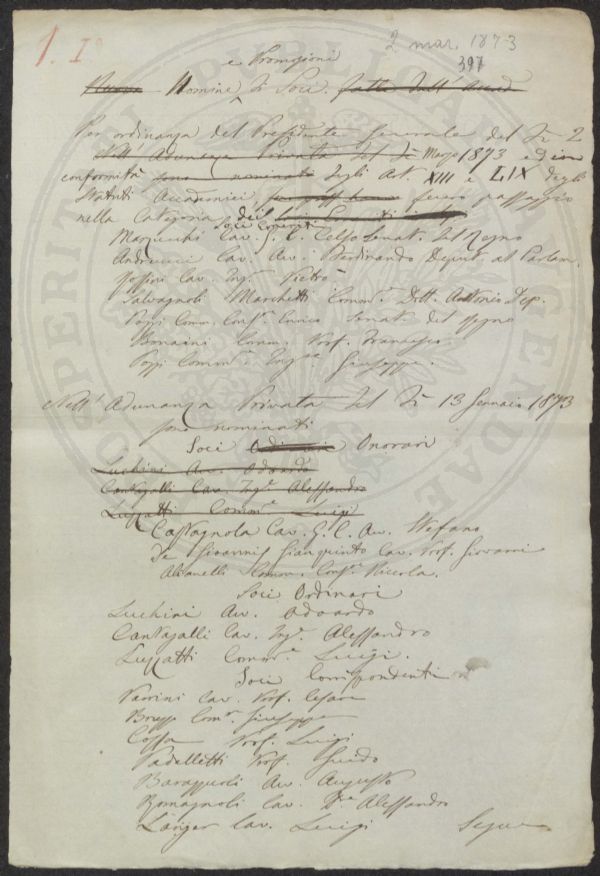 1. I°
2 mar. 1873
397
e Promozioni
Nuove Nomine di Soci fatte dall' Accad
Per ordinanza del Presidente Generale del dì 2
Nell' Adunanza Privata del dì Marzo 1873 ed in
conformità sono nominati degli Art. XIII e LIX degli
Statuti Accademici fecero passaggio
nella Categoria dei
Soci Emeriti
Marzucchi Cav. G. C. Celso Senat. del Regno
Andreucci Cav. Av. Ferdinando Deput. al Parlam.
Rossini Cav. Ing. Pietro
Salvagnoli Marchetti Comm. Dott. Antonio Dep.
Poggi Comm. Cons. Enrico Senat. del Regno
Bonaini Comm. Prof. Francesco
Poggi Comm. Ing. Giuseppe.
Nell' Adunanza Privata del dì 13 Gennaio 1873
furono nominati
Soci Ordinari Onorari
Luchini Av. Odoardo
Cantagalli Cav. Ing. Alessandro
Luzzatti Comm. Luigi
Castagnola Cav. G. C. Av. Stefano
De Giovannis Gianquinto Cav. Prof. Giovanni
Alianelli Comm. Cons. Niccola.
Soci Ordinari
Luchini Av. Odoardo
Cantagalli Cav. Ing. Alessandro
Luzzatti Comm. Luigi.
Soci Corrispondenti
Vannini Cav. Prof. Cesare
Comm. Giuseppe
Cossa Prof. Luigi
Padelletti Prof. Guido
Barazzuoli Av. Augusto
Romagnoli Cav. Dr. Alessandro
Langer Cav. Luigi
Segue